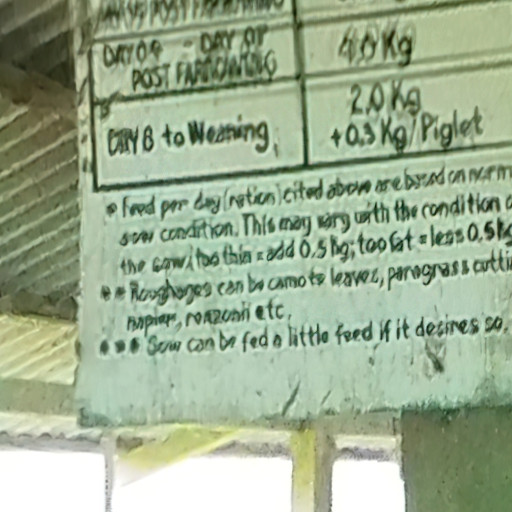 POST
DAY OF
POST FARROWING
4.0 Kg
DAY 8 to Weaning
2.0 Kg
+0.3 Kg/Piglet
* Feed per day (ration) cited above are based on norm
sow condition. This may vary with the condition o
the sow; too thin = add 0.5 kg; too fat = less 0.5 kg
* * Roughages can be camote leaves, paragrass cutti
napier, etc.
* * * Sow can be fed a little feed if it desires so.